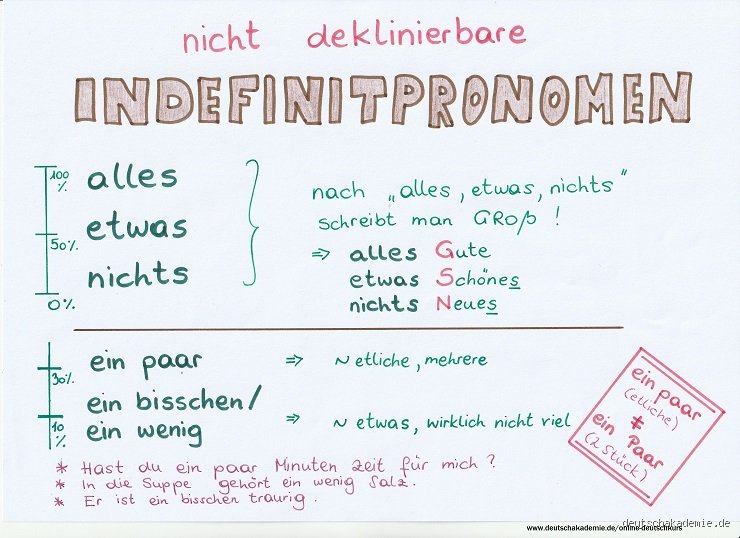 nicht deklinierbare
INDEFINITPRONOMEN
100 %
alles
50%
etwas
0%
nichts
nach „alles, etwas, nichts"
schreibt man GROß !
⇒ alles Gute
etwas Schönes
nichts Neues
30%
ein paar ⇒ ~ etliche, mehrere
10 %
ein bisschen/
ein wenig ⇒ ~ etwas, wirklich nicht viel
ein paar
(etliche)
≠
ein Paar
(2 Stück)
* Hast du ein paar Minuten Zeit für mich ?
* In die Suppe gehört ein wenig Salz.
* Er ist ein bisschen traurig.
www.deutschakademie.de/online-deutschkurs
deutschakademie.de